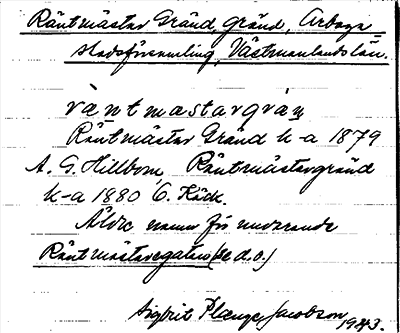 Räntmästar Gränd, gränd, Arboga
stadsförsamling, Västmanlands län.
räntmastargrän
Räntmästar Gränd k-a 1879
A. G. Hillbom, Räntmästargränd
k-a 1880 C. Räck.
Äldre namn för nuvarande
Räntmästaregatan (se d.o.)
Sigbrit Plænge Jacobson
1943.